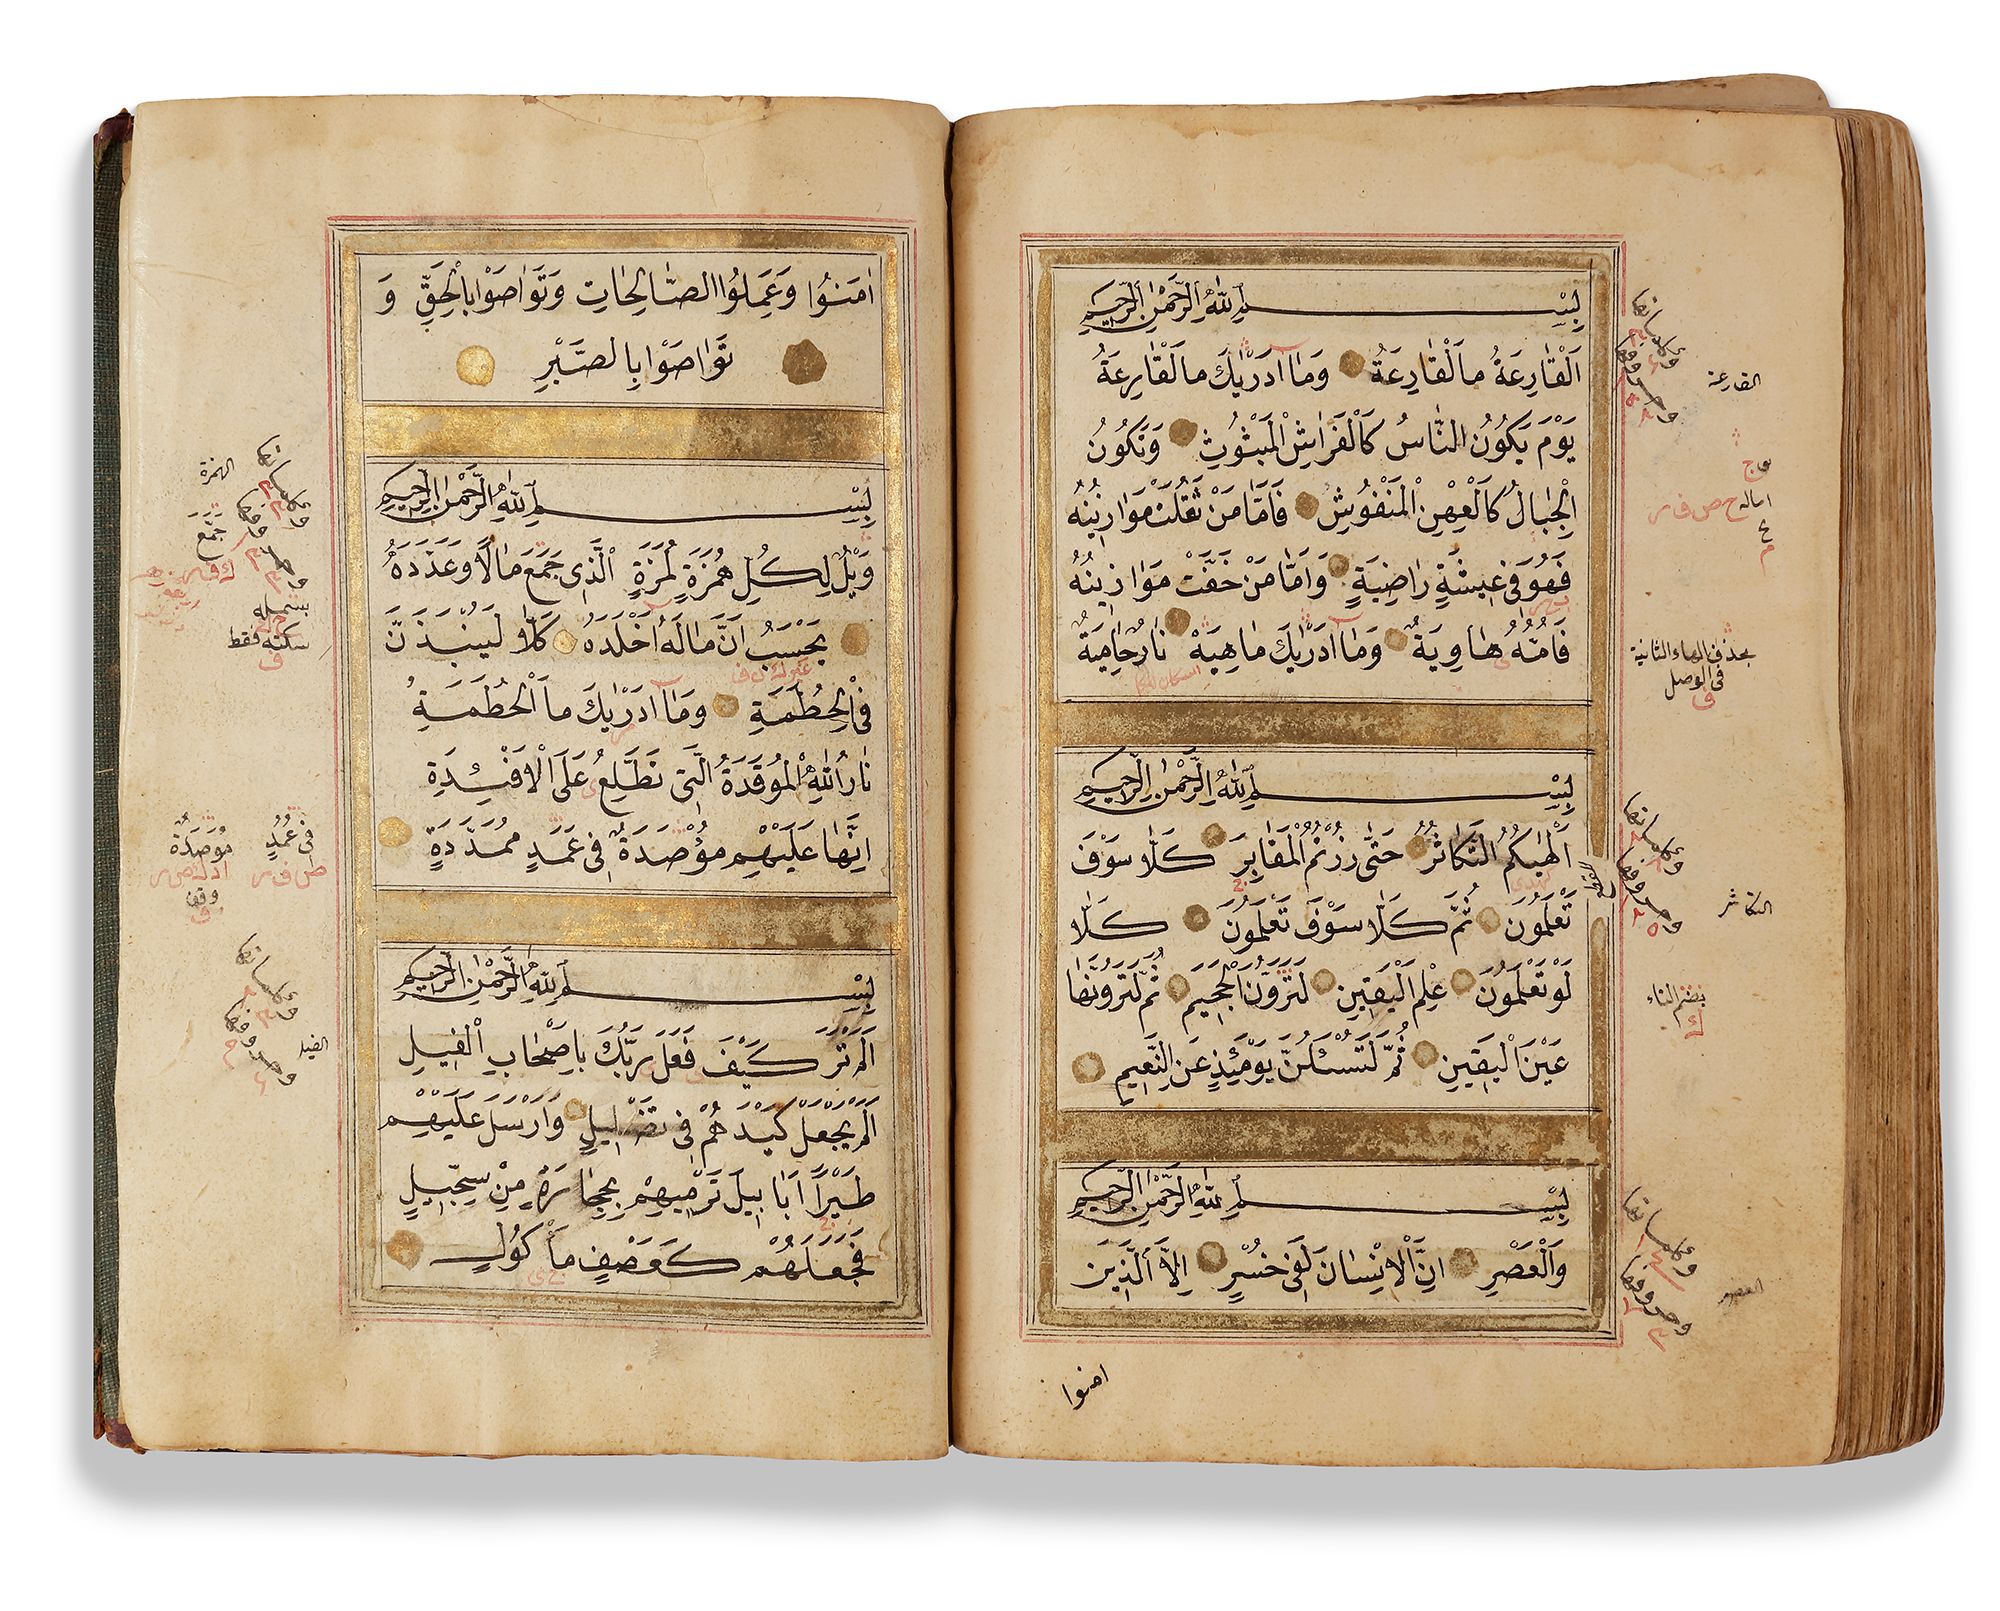 بِسْمِ اللّٰهِ الرَّحْمٰنِ الرَّحِيمِ
اَلْقَارِعَةُ مَا الْقَارِعَةُ وَمَا اَدْرٰيكَ مَا الْقَارِعَةُ
يَوْمَ يَكُونُ النَّاسُ كَالْفَرَاشِ الْمَبْثُوثِ وَتَكُونُ
الْجِبَالُ كَالْعِهْنِ الْمَنْفُوشِ فَاَمَّا مَنْ ثَقُلَتْ مَوَازِينُهُ
فَهُوَ فِى عِيشَةٍ رَاضِيَةٍ وَاَمَّا مَنْ خَفَّتْ مَوَازِينُهُ
فَاُمُّهُ هَاوِيَةٌ وَمَا اَدْرٰيكَ مَاهِيَهْ نَارٌ حَامِيَةٌ
بِسْمِ اللّٰهِ الرَّحْمٰنِ الرَّحِيمِ
اَلْهٰيكُمُ التَّكَاثُرُ حَتّٰى زُرْتُمُ الْمَقَابِرَ كَلَّا سَوْفَ
تَعْلَمُونَ ثُمَّ كَلَّا سَوْفَ تَعْلَمُونَ كَلَّا
لَوْ تَعْلَمُونَ عِلْمَ الْيَقِينِ لَتَرَوُنَّ الْجَحِيمَ ثُمَّ لَتَرَوُنَّهَا
عَيْنَ الْيَقِينِ ثُمَّ لَتُسْئَلُنَّ يَوْمَئِذٍ عَنِ النَّعِيمِ
بِسْمِ اللّٰهِ الرَّحْمٰنِ الرَّحِيمِ
وَالْعَصْرِ اِنَّ الْاِنْسَانَ لَفِى خُسْرٍ اِلَّا الَّذِينَ
امنوا
القارعة
اماله
بحذف الهاء الثانية
فى الوصل
التكاثر
بضم التاء
العصر
اٰمَنُوا وَعَمِلُوا الصَّالِحَاتِ وَتَوَاصَوْا بِالْحَقِّ وَ
تَوَاصَوْا بِالصَّبْرِ
بِسْمِ اللّٰهِ الرَّحْمٰنِ الرَّحِيمِ
وَيْلٌ لِكُلِّ هُمَزَةٍ لُمَزَةٍ الَّذِى جَمَعَ مَالًا وَعَدَّدَهُ
يَحْسَبُ اَنَّ مَالَهُ اَخْلَدَهُ كَلَّا لَيُنْبَذَنَّ
فِى الْحُطَمَةِ وَمَا اَدْرٰيكَ مَا الْحُطَمَةُ
نَارُ اللّٰهِ الْمُوقَدَةُ الَّتِى تَطَّلِعُ عَلَى الْاَفْئِدَةِ
اِنَّهَا عَلَيْهِمْ مُؤْصَدَةٌ فِى عَمَدٍ مُمَدَّدَةٍ
بِسْمِ اللّٰهِ الرَّحْمٰنِ الرَّحِيمِ
اَلَمْ تَرَ كَيْفَ فَعَلَ رَبُّكَ بِاَصْحَابِ الْفِيلِ
اَلَمْ يَجْعَلْ كَيْدَهُمْ فِى تَضْلِيلٍ وَاَرْسَلَ عَلَيْهِمْ
طَيْرًا اَبَابِيلَ تَرْمِيهِمْ بِحِجَارَةٍ مِنْ سِجِّيلٍ
فَجَعَلَهُمْ كَعَصْفٍ مَأْكُولٍ
الهمزة
جَمَّعَ
بسمله
سكته فقط
فِى عُمُدٍ
مُوصَدَةٌ
وقف
الفيل